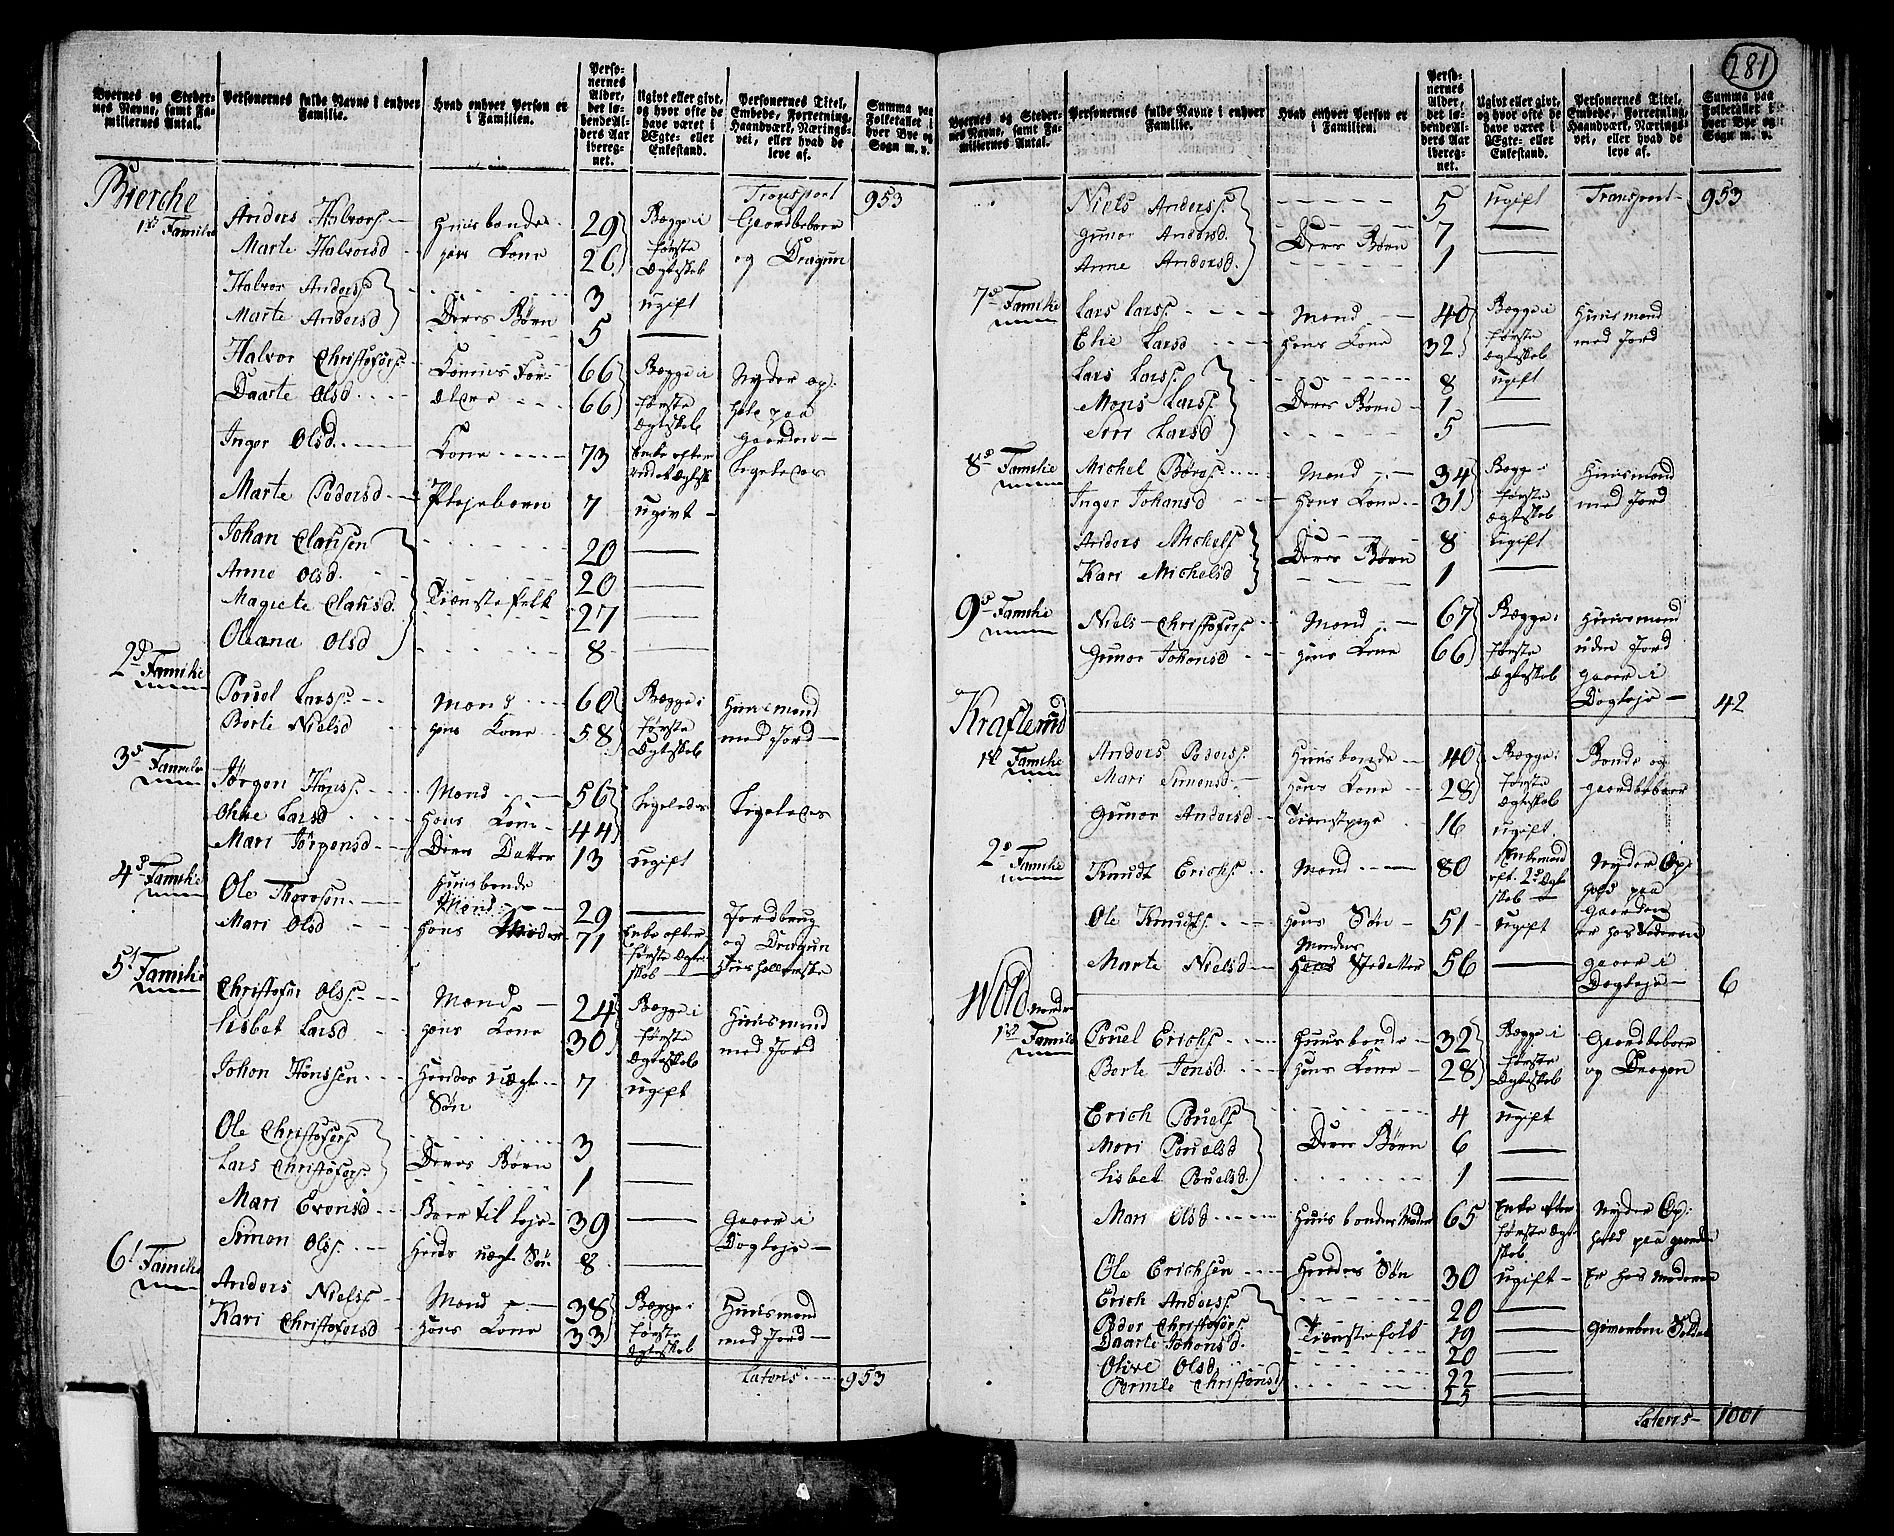 281
Byernes og Stedernes Navne, samt Familiernes Antal.
Personernes fulde Navne i enhver Familie.
Hvad enhver Person er i Familien.
Personernes Alder, det løbende Alders Aar iberegnet.
Ugivt eller givt, og hvor ofte de have været i Ægte- eller Enkestand.
Personernes Titel, Embede, Forretning, Haandværk, Næringsvei, eller hvad de leve af.
Summa paa Folketallet i hver Bye og Sogn m. v.
Transport 953
Bierche
1ste Familie Anders Halvors. Huusbonde 29 Begge i Gaordbeboer
Marte Halvorsd hans Kone 26 første og Dragun
Ægteskab
Halvor Anders. 3 ugift
Marte Andersd Deres Børn 5
Halvor Christofers. Konens For- 66 Begge i Nyder op-
Daarte Olsd ældre 66 første hole paa
Ægteskab Gaorden
Inger Olsd Kone 73 Enke efter Ligeledes
Marte Pedersd Plejebarn 7 ugivt
Johan Clausen 20
Anne Olsd. 20
Magrete Clausd. Tienstefolk 27
Oleana Olsd 8
2d Familie
Pouel Lars. Mand 60 Begge i Huusmand
Berte Nielsd hans Kone 58 første med Jord
Ægteskab
3d Familie
Jørgen Hans. Mand 56 Ligeledes Ligeledes
Olive Larsd hans Kone 44
Mari Jørgensd Deres Datter 13 ugift
4d Familie Huusbonde
Ole Thorsen Mand 29 Jordbrug
Mari Olsd hans Moder 71 Enke efter og Dragun
første Ægte-
skab
5t Familie
Christofer Ols. Mand 24 Begge i Huusmand
Lisbet Larsd hans Kone 30 første med Jord
Ægteskab
Johan Hanssen Hendes uægte 7 ugift
Søn
Ole Christofers 3
Lars Christofers. Deres Børn 1
Mari Evensd Boer til Leje 39 gaaer i
Simon Ols. Hends uægt Søn 8 Dagleje
6t Familie
Anders Niels. Mand 38 Begge i Huusmand
Kari Christofersd hans Kone 33 første med Jord
Ægteskab
Lateris 953
Byernes og Stedernes Navne, samt Familiernes Antal.
Personernes fulde Navne i enhver Familie.
Hvad enhver Person er i Familien.
Personernes Alder, det løbende Alders Aar iberegnet.
Ugivt eller givt, og hvor ofte de have været i Ægte- eller Enkestand.
Personernes Titel, Embede, Forretning, Haandværk, Næringsvei, eller hvad de leve af.
Summa paa Folketallet i hver Bye og Sogn m. v.
Niels Anders. 5 ugift Transport 953
Gunor Andersd. Deres Børn 7
Anne Andersd. 1
7d Familie Lars Lars. Mand 40 Begge i Huusmand
Elie Larsd hans Kone 32 første med Jord
Ægteskab
Lars Lars. 8 ugift
Mons Lars. Deres Børn 1
Siri Larsd 5
8d Familie Michel Børes. Mand 34 Begge i Huusmand
Inger Johansd hans Kone 31 første med Jord
Ægteskab
Anders Michels 8 ugift
Kari Michelsd Deres Børn 1
9d Familie Niels Christofers. Mand 67 Begge i Huusmand
Gunor Johansd hans Kone 66 første uden Jord
Ægteskab gaaer i
Dagleje 42
Kraflerud
1st Familie Anders Peders. Huusbonde 40 Begge i Bonde og
Mari Simensd. hans Kone 28 første gaardbeboer
Ægteskab
Gunor Andersd Tienstpige 16 ugift
2d Familie Knudt Erichs. Mand 80 Enkemand Nyder Op-
eft. 2d Ægte- hold paa
skab Gaorden
Ole Knudts. hans Søn 51 ugift er hos Faderen
Mandens
Marte Nielsd Stedatter 56 gaaer i
Dagleje 6
Wold
1st Familie Pouel Erichs. Huusbonde 32 Begge i Gaardbeboer
Berte Jonsd. hans Kone 28 første og Dragon
Ægteskab
Erich Pouels. 4 ugift
Mari Pouelsd Deres Børn 6
Lisbet Pouelsd. 1
Mari Olsd Huusbondens Moder 65 Enke efter Nyder Op-
første Ægte- hold paa gaorden
skab
Ole Erichsen Hendes Søn 30 ugift Er hos Moderen
Erich Anders. 20
Peder Christofers Tienstefolk 19 Gevorben Soldat
Daarte Johansd. 20
Olive Olsd 22
Pernile Christensd 25
Lateris 1001